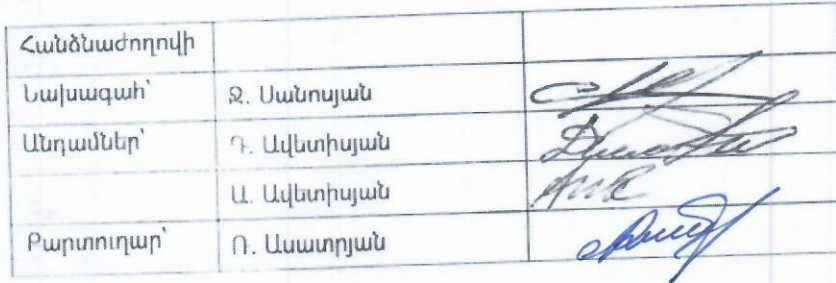 Հանձնաժողովի
Նախագահ՝ Ջ. Սանոսյան
Անդամներ՝ Դ. Ավետիսյան
Ա. Ավետիսյան
Քարտուղար՝ Ռ. Ասատրյան